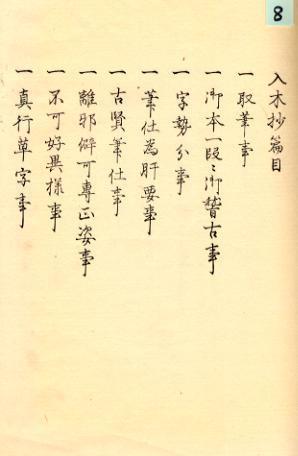 8
入木抄篇目
一 取筆事
一 御本一段〻御稽古事
一 字勢分事
一 筆仕為肝要事
一 古賢筆仕事
一 離邪僻可専正姿事
一 不可好異様事
一 真行草字事